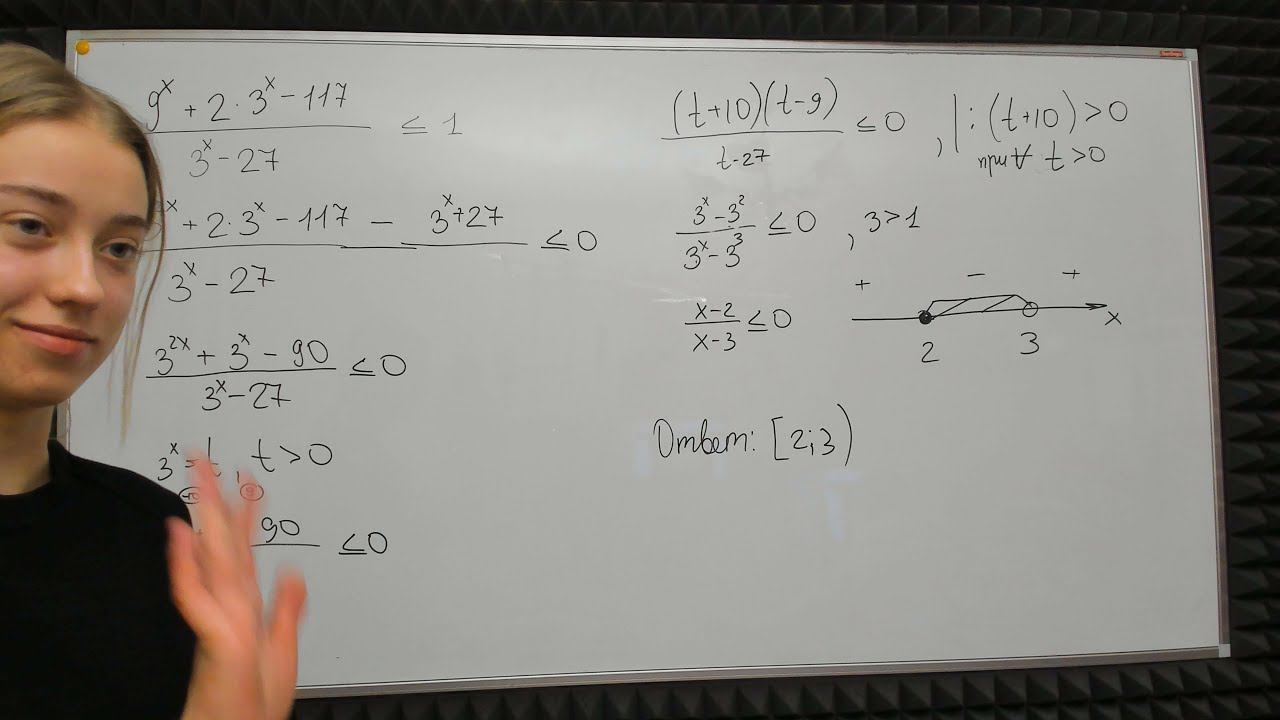 9ˣ + 2 · 3ˣ − 117
3ˣ − 27
≤ 1
ˣ + 2 · 3ˣ − 117 − 3ˣ + 27
3ˣ − 27
≤ 0
3²ˣ + 3ˣ − 90
3ˣ − 27
≤ 0
3ˣ = t, t > 0
−10 9
90
≤ 0
(t+10)(t−9)
t−27
≤ 0 , | : (t+10) > 0
при ∀ t > 0
3ˣ − 3²
3ˣ − 3³
≤ 0 , 3 > 1
x−2
x−3
≤ 0
+ − +
2 3 x
Ответ: [2;3)